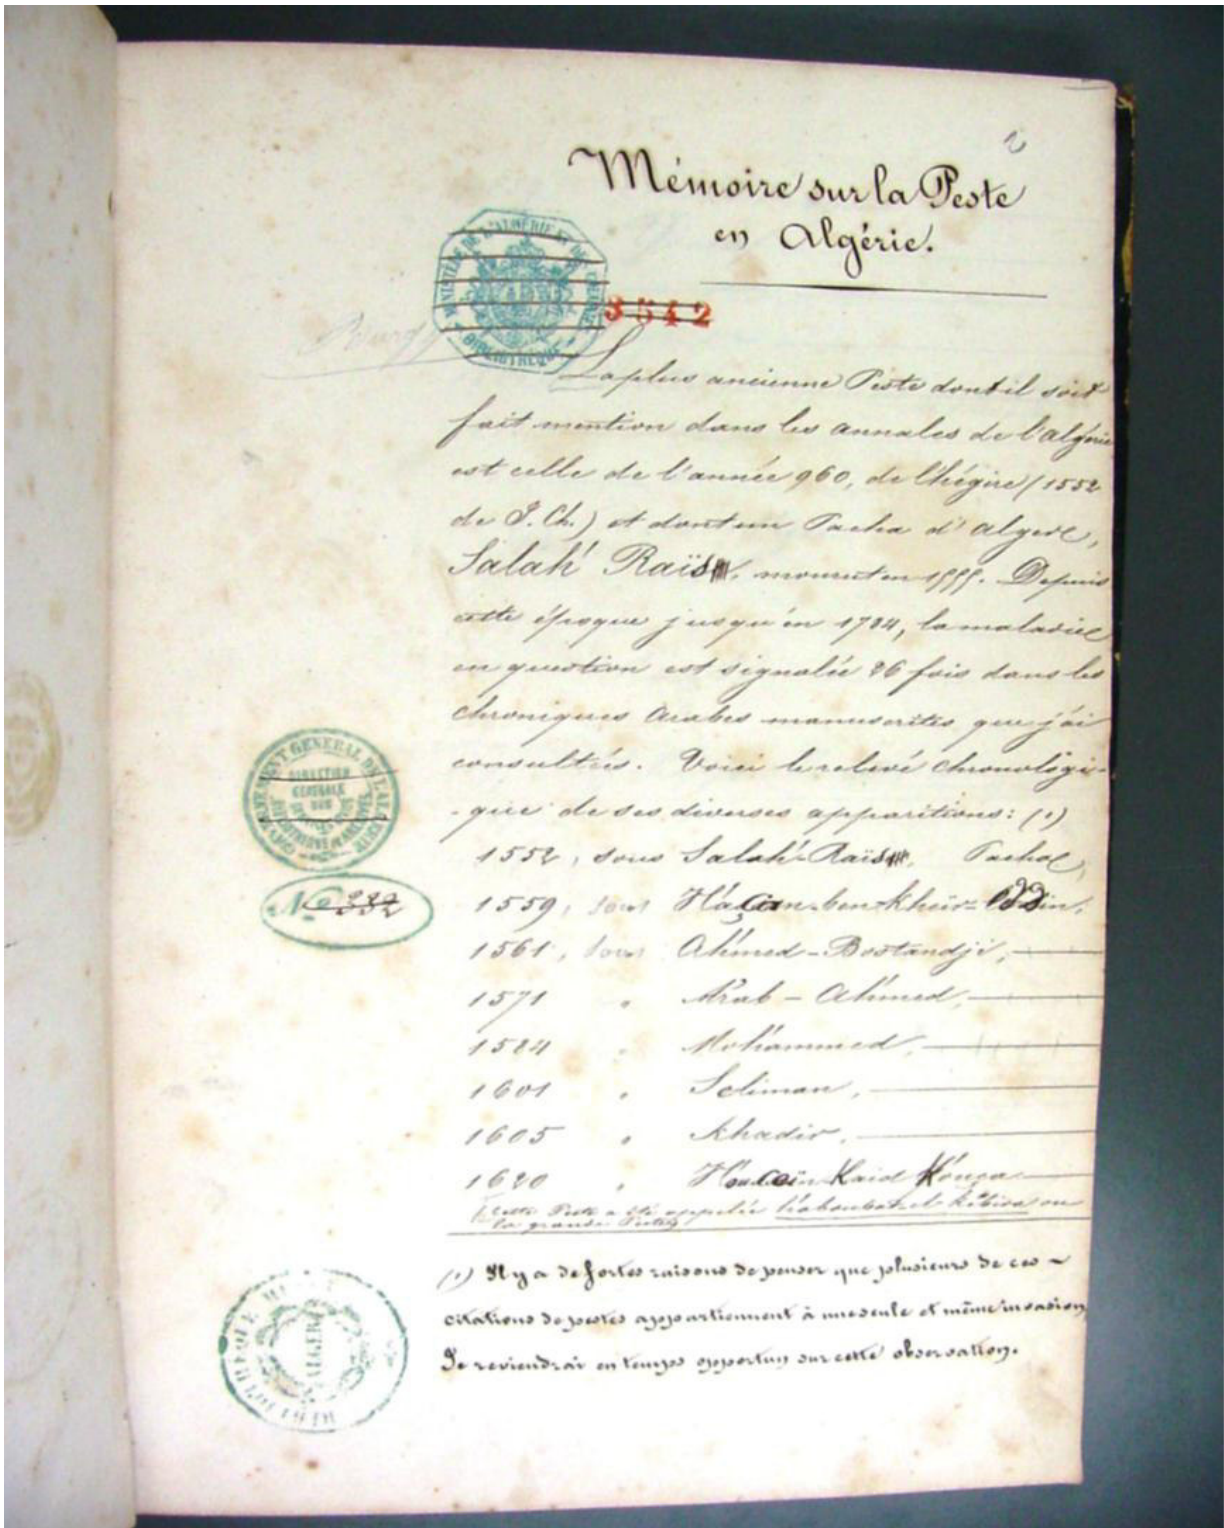 2
Mémoire sur la Peste
en Algérie.
MINISTÈRE DE L'ALGÉRIE ET DES COLONIES
BIBLIOTHÈQUE
3542
La plus ancienne Peste dont il soit
fait mention dans les annales de l'algérie
est celle de l'année 960, de l'hégire (1552
de J. Ch.) et dont un Pacha d'alger,
Salah' Raïs, mourut en 1555. Depuis
cette époque jusqu'en 1784, la maladie
en question est signalée 26 fois dans les
chroniques Arabes manuscrites que j'ai
consultées. Voici le relevé chronologi-
-que de ses diverses apparitions: (1)
GOUVERNEMENT GÉNÉRAL DE L'ALGÉRIE
DIRECTION
GÉNÉRALE
DES
1552, sous Salah'-Raïs, Pacha,
No 332
1559, sous H'açan-ben-Kheïr-Eddin,
1561, sous Ah'med-Bostandji,
1571 " A'rab - Ah'med,
1584 " Moh'ammed,
1601 " Soliman,
1605 " Khadir,
1620 " H'ouceïn Kaid K'ouça
Cette Peste a été appelée h'aboubat el Kebira ou
la grande Peste
(1) Il y a de fortes raisons de penser que plusieurs de ces
citations de pestes appartiennent à une seule et même invasion,
Je reviendrai en temps opportun sur cette observation.
BIBLIOTHÈQUE
ALGER